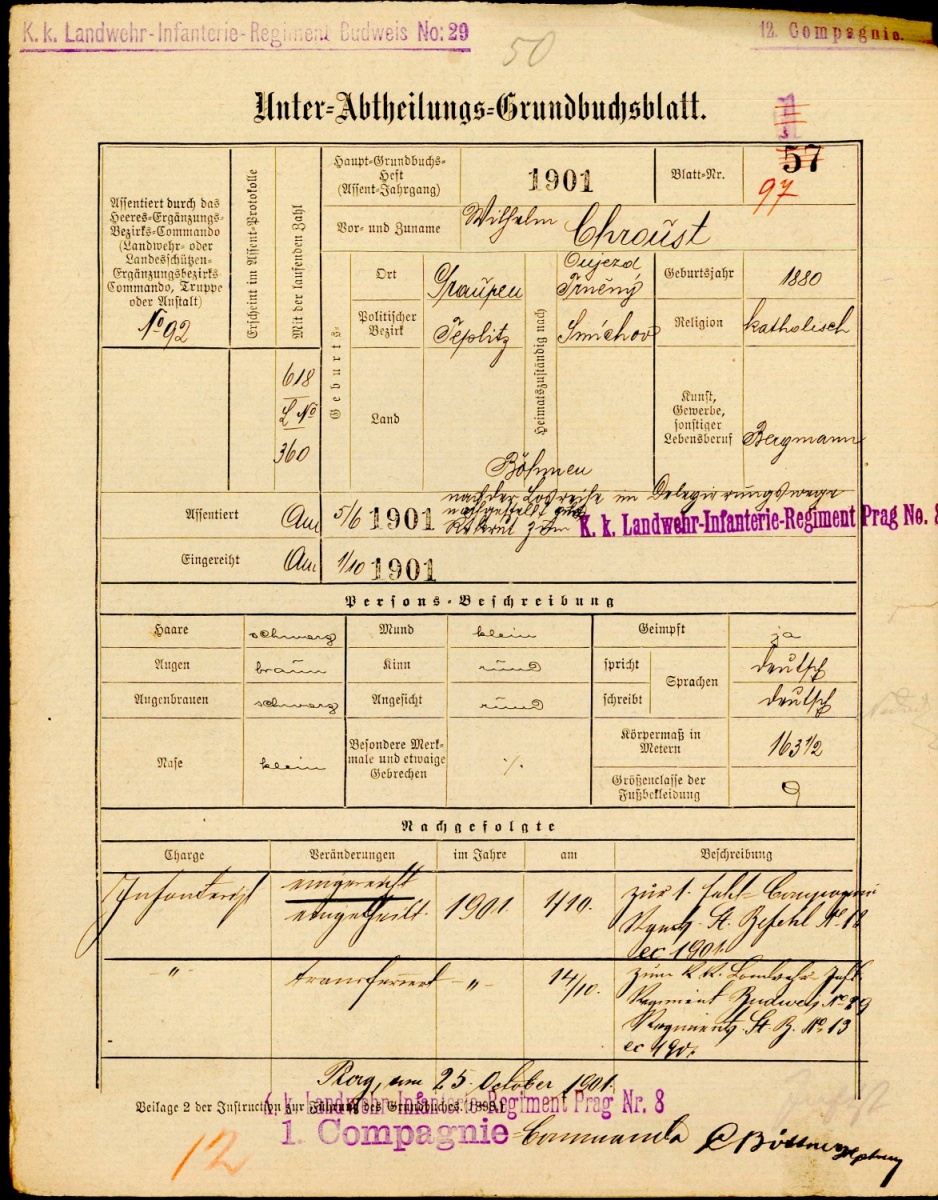 K. k. Landwehr-Infanterie-Regiment Budweis No: 29
12. Compagnie.
50
Unter-Abtheilungs-Grundbuchsblatt.
Assentiert durch das
Heeres-Ergänzungs-
Bezirks-Commando
(Landwehr- oder
Landesschützen-
Ergänzungsbezirks
Commando, Truppe
oder Anstalt)
No 92
Erscheint im Assent-Protokolle
Mit der laufenden Zahl
618
L No
360
Haupt-Grundbuchs-
Heft
(Assent-Jahrgang)
1901
Blatt-Nr.
57
97
Vor- und Zuname
Wilhelm Chroust
Geburts-
Ort
Graupen
Politischer
Bezirk
Teplitz
Land
Böhmen
Heimatszuständig nach
Oujezd
Trněný
Smichov
Geburtsjahr
1880
Religion
katholisch
Kunst,
Gewerbe,
sonstiger
Lebensberuf
Bergmann
Assentiert
Am 5/6 1901
nach der Losreihe im Delegierungswege
Rekrut zum K. k. Landwehr-Infanterie-Regiment Prag No. 8
Eingereiht
Am 1/10 1901
Persons-Beschreibung
Haare schwarz
Mund klein
Geimpft ja
Augen braun
Kinn rund
spricht deutsch
Sprachen
Augenbrauen schwarz
Angesicht rund
schreibt deutsch
Nase klein
Besondere Merk-
male und etwaige
Gebrechen
./.
Körpermaß in
Metern
163 1/2
Größenclasse der
Fußbekleidung
9
Nachgefolgte
Charge Veränderungen im Jahre am Beschreibung
Infanterist eingereiht
eingetheilt. 1901. 4/10. zur 1. Feld-Compagnie
Rgmts. St. Befehl No 12
ec 1901.
-"- transferiert -"- 14/10. zum k. k. Landwehr-Inft.
Regiment Budweis No 29
Regiments St. B. No. 13
ec 1901
Prag, am 25. October 1901.
Beilage 2 der Instruction zur Führung des Grundbuches. (1895.)
K. k. Landwehr-Infanterie-Regiment Prag Nr. 8
1. Compagnie-Commando
12